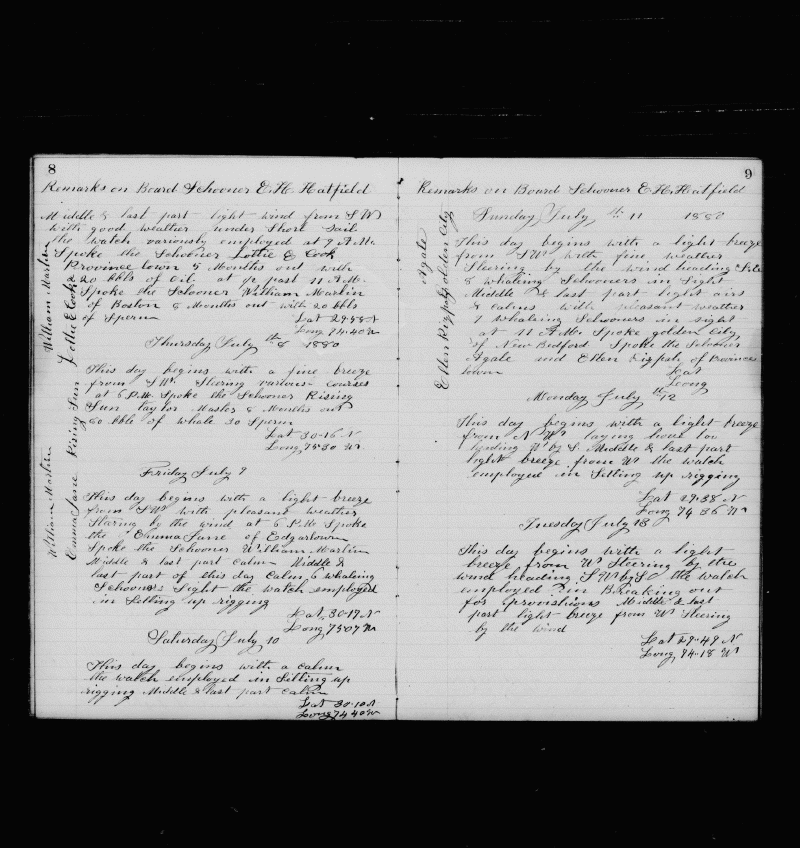 8
Remarks on Board Schooner E. H. Hatfield
Middle & last part light wind from SW
with good weather under Short Sail
the watch variously employed at 9 A.M.
Spoke the Schooner Lottie E Cook
Province town 5 Months out with
220 bbls of Oil at ½ past 11 A.M.
Spoke the Schooner William Martin
of Boston 8 Months out with 20 bbls
of Sperm
Lat 29-58 N
Long 74.40 W
William Martin
Lottie E Cook
Thursday July 8th 1880
This day begins with a fine breeze
from SW. Stering various courses
at 6 P.M. Spoke the Schooner Rising
Sun Taylor Master 8 Months out
60 bbls of whale 30 Sperm
Lat 30-16 N
Long 75-30 W.
Rising Sun
Friday July 9
This day begins with a light breeze
from SW with pleasant weather
Staring by the wind at 6 P.M. Spoke
the Emma Jane of Edgartown
Spoke the Schooner William Martin
Middle & last part calm Middle &
last part of this day calm, 6 whaleing
Schooners Sight the watch employed
in Setting up rigging
Lat 30-17 N
Long 75-07 W
William Martin
Emma Jane
Saturday July 10
This day begins with a calm
the watch employed in Setting up
rigging Middle & last part calm
Lat 30-10 N
Long 74 40 W
9
Remarks on Board Schooner E. H. Hatfield
Sunday July 11th 1880
This day begins with a light breeze
from SW with fine weather
Steering by the wind heading
8 whaleing Schooners in Sight
Middle & last part light airs
& calms with pleasant weather
7 whaleing Schooners in sight
at 11 A.M. Spoke golden City,
of New Bedford Spoke the Schooner
Agate and Ellen Rizpah of Province
town
Lat
Long
Agate
Ellen Rizpah golden City
Monday July 12th
This day begins with a light breeze
from N W. laying hove too
heading W by S. Middle & last part
light breeze from W the watch
employed in Setting up rigging
Lat 29-38 N
Long 74 36 W
Tuesday July 13
This day begins with a light
breeze from W Steering by the
wind heading SW by S the watch
employed in Breaking out
for provisions Middle & last
part light breeze from W Steering
by the wind
Lat 29-49 N
Long 74-18 W